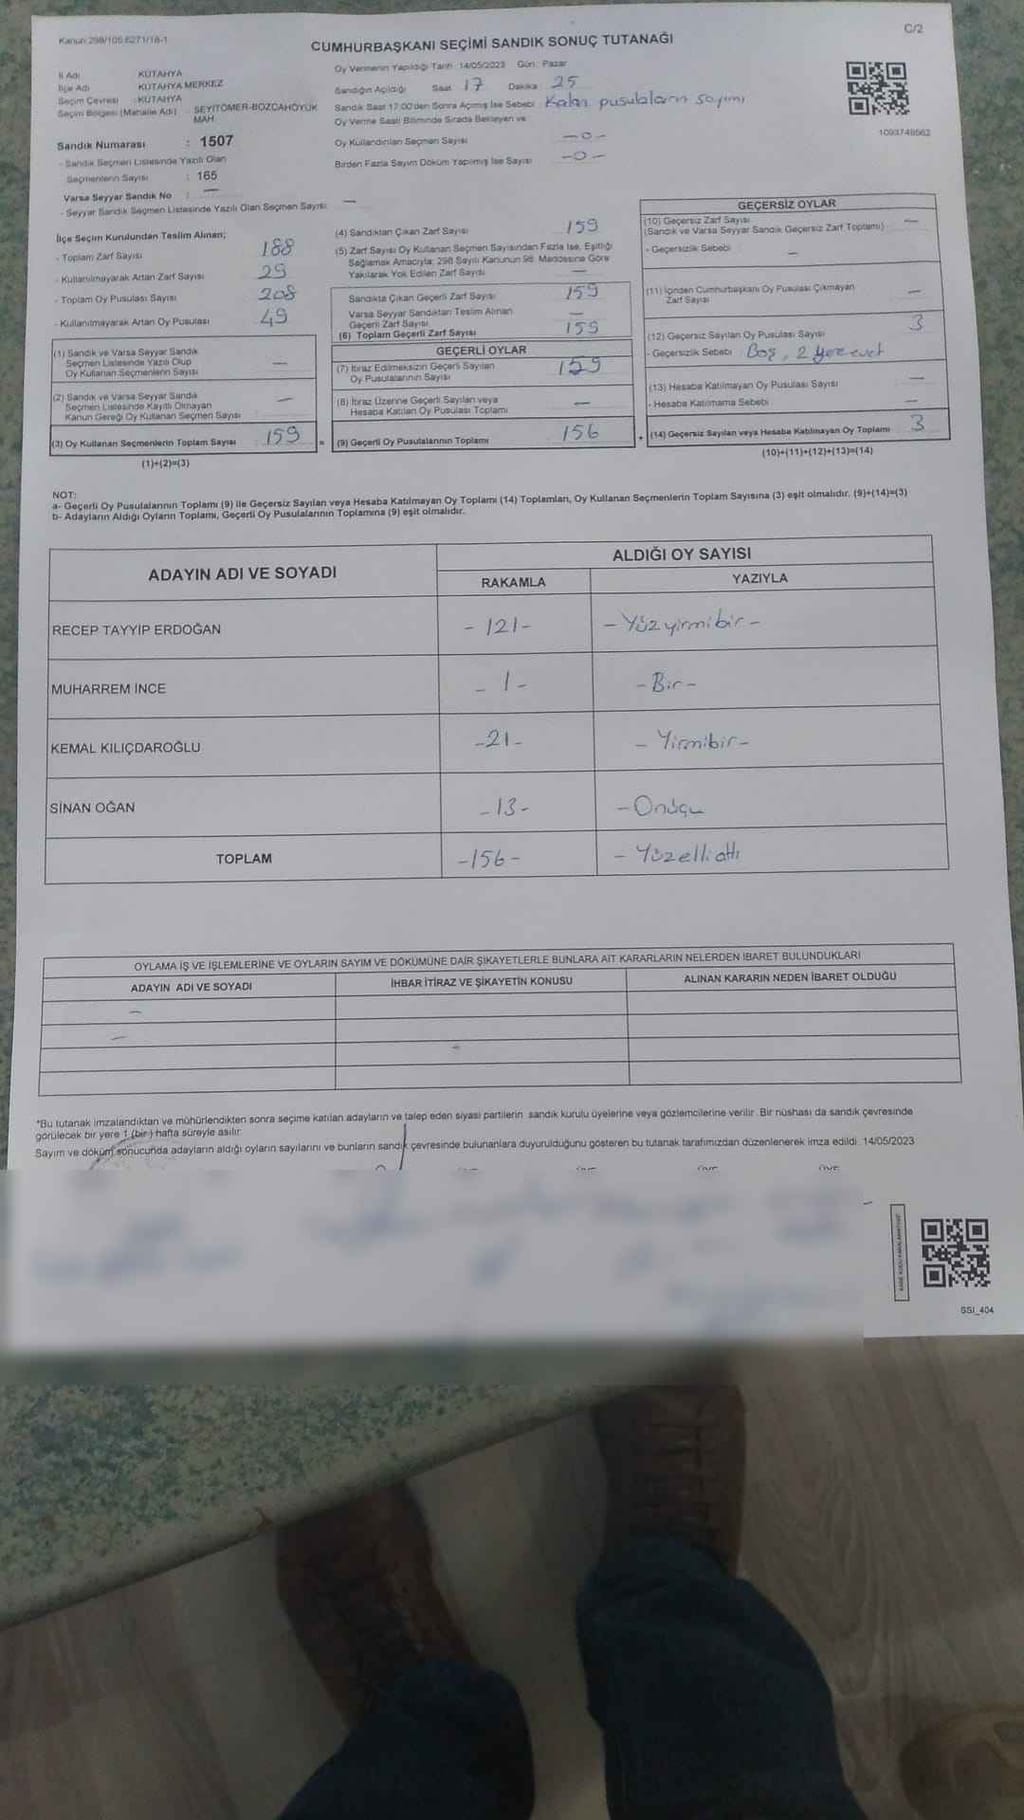 Kanun 298/105 6271/18-1
C/2
CUMHURBAŞKANI SEÇİMİ SANDIK SONUÇ TUTANAĞI
İl Adı KÜTAHYA
İlçe Adı KÜTAHYA MERKEZ
Seçim Çevresi : KÜTAHYA
Seçim Bölgesi (Mahalle Adı) SEYİTÖMER-BOZCAHÖYÜK MAH.
Sandık Numarası : 1507
- Sandık Seçmen Listesinde Yazılı Olan
Seçmenlerin Sayısı : 165
Varsa Seyyar Sandık No : —
- Seyyar Sandık Seçmen Listesinde Yazılı Olan Seçmen Sayısı —
Oy Vermenin Yapıldığı Tarih 14/05/2023 Gün: Pazar
Sandığın Açıldığı Saat 17 Dakika 25
Sandık Saat 17:00'den Sonra Açılmış İse Sebebi Kalan pusulaların sayımı
Oy Verme Saati Bitiminde Sırada Bekleyen ve
Oy Kullandırılan Seçmen Sayısı —0—
Birden Fazla Sayım Döküm Yapılmış İse Sayısı —0—
1093748562
İlçe Seçim Kurulundan Teslim Alınan;
- Toplam Zarf Sayısı 188
- Kullanılmayarak Artan Zarf Sayısı 29
- Toplam Oy Pusulası Sayısı 208
- Kullanılmayarak Artan Oy Pusulası 49
(1) Sandık ve Varsa Seyyar Sandık
Seçmen Listesinde Yazılı Olup
Oy Kullanan Seçmenlerin Sayısı —
(2) Sandık ve Varsa Seyyar Sandık
Seçmen Listesinde Kayıtlı Olmayan
Kanun Gereği Oy Kullanan Seçmen Sayısı —
(3) Oy Kullanan Seçmenlerin Toplam Sayısı 159
(1)+(2)=(3)
(4) Sandıktan Çıkan Zarf Sayısı 159
(5) Zarf Sayısı Oy Kullanan Seçmen Sayısından Fazla İse, Eşitliği
Sağlamak Amacıyla; 298 Sayılı Kanunun 98. Maddesine Göre
Yakılarak Yok Edilen Zarf Sayısı —
Sandıkta Çıkan Geçerli Zarf Sayısı 159
Varsa Seyyar Sandıktan Teslim Alınan
Geçerli Zarf Sayısı —
(6) Toplam Geçerli Zarf Sayısı 159
GEÇERLİ OYLAR
(7) İtiraz Edilmeksizin Geçerli Sayılan
Oy Pusulalarının Sayısı 159
(8) İtiraz Üzerine Geçerli Sayılan veya
Hesaba Katılan Oy Pusulası Toplamı —
= (9) Geçerli Oy Pusulalarının Toplamı 156
GEÇERSİZ OYLAR
(10) Geçersiz Zarf Sayısı —
(Sandık ve Varsa Seyyar Sandık Geçersiz Zarf Toplamı)
- Geçersizlik Sebebi —
(11) İçinden Cumhurbaşkanı Oy Pusulası Çıkmayan
Zarf Sayısı —
(12) Geçersiz Sayılan Oy Pusulası Sayısı 3
- Geçersizlik Sebebi Boş, 2 yere evet
(13) Hesaba Katılmayan Oy Pusulası Sayısı —
- Hesaba Katılmama Sebebi —
+ (14) Geçersiz Sayılan veya Hesaba Katılmayan Oy Toplamı 3
(10)+(11)+(12)+(13)=(14)
NOT:
a- Geçerli Oy Pusulalarının Toplamı (9) ile Geçersiz Sayılan veya Hesaba Katılmayan Oy Toplamı (14) Toplamları, Oy Kullanan Seçmenlerin Toplam Sayısına (3) eşit olmalıdır. (9)+(14)=(3)
b- Adayların Aldığı Oyların Toplamı, Geçerli Oy Pusulalarının Toplamına (9) eşit olmalıdır.
ADAYIN ADI VE SOYADI
ALDIĞI OY SAYISI
RAKAMLA YAZIYLA
RECEP TAYYİP ERDOĞAN - 121 - - Yüzyirmibir -
MUHARREM İNCE - 1 - - Bir -
KEMAL KILIÇDAROĞLU - 21 - - Yirmibir -
SİNAN OĞAN - 13 - - Onüç -
TOPLAM - 156 - - Yüzellialtı
OYLAMA İŞ VE İŞLEMLERİNE VE OYLARIN SAYIM VE DÖKÜMÜNE DAİR ŞİKAYETLERLE BUNLARA AİT KARARLARIN NELERDEN İBARET BULUNDUKLARI
ADAYIN ADI VE SOYADI İHBAR İTİRAZ VE ŞİKAYETİN KONUSU ALINAN KARARIN NEDEN İBARET OLDUĞU
*Bu tutanak imzalandıktan ve mühürlendikten sonra seçime katılan adayların ve talep eden siyasi partilerin sandık kurulu üyelerine veya gözlemcilerine verilir. Bir nüshası da sandık çevresinde
görülecek bir yere 1 (bir) hafta süreyle asılır.
Sayım ve döküm sonucunda adayların aldığı oyların sayılarını ve bunların sandık çevresinde bulunanlara duyurulduğunu gösteren bu tutanak tarafımızdan düzenlenerek imza edildi. 14/05/2023
SSI_404